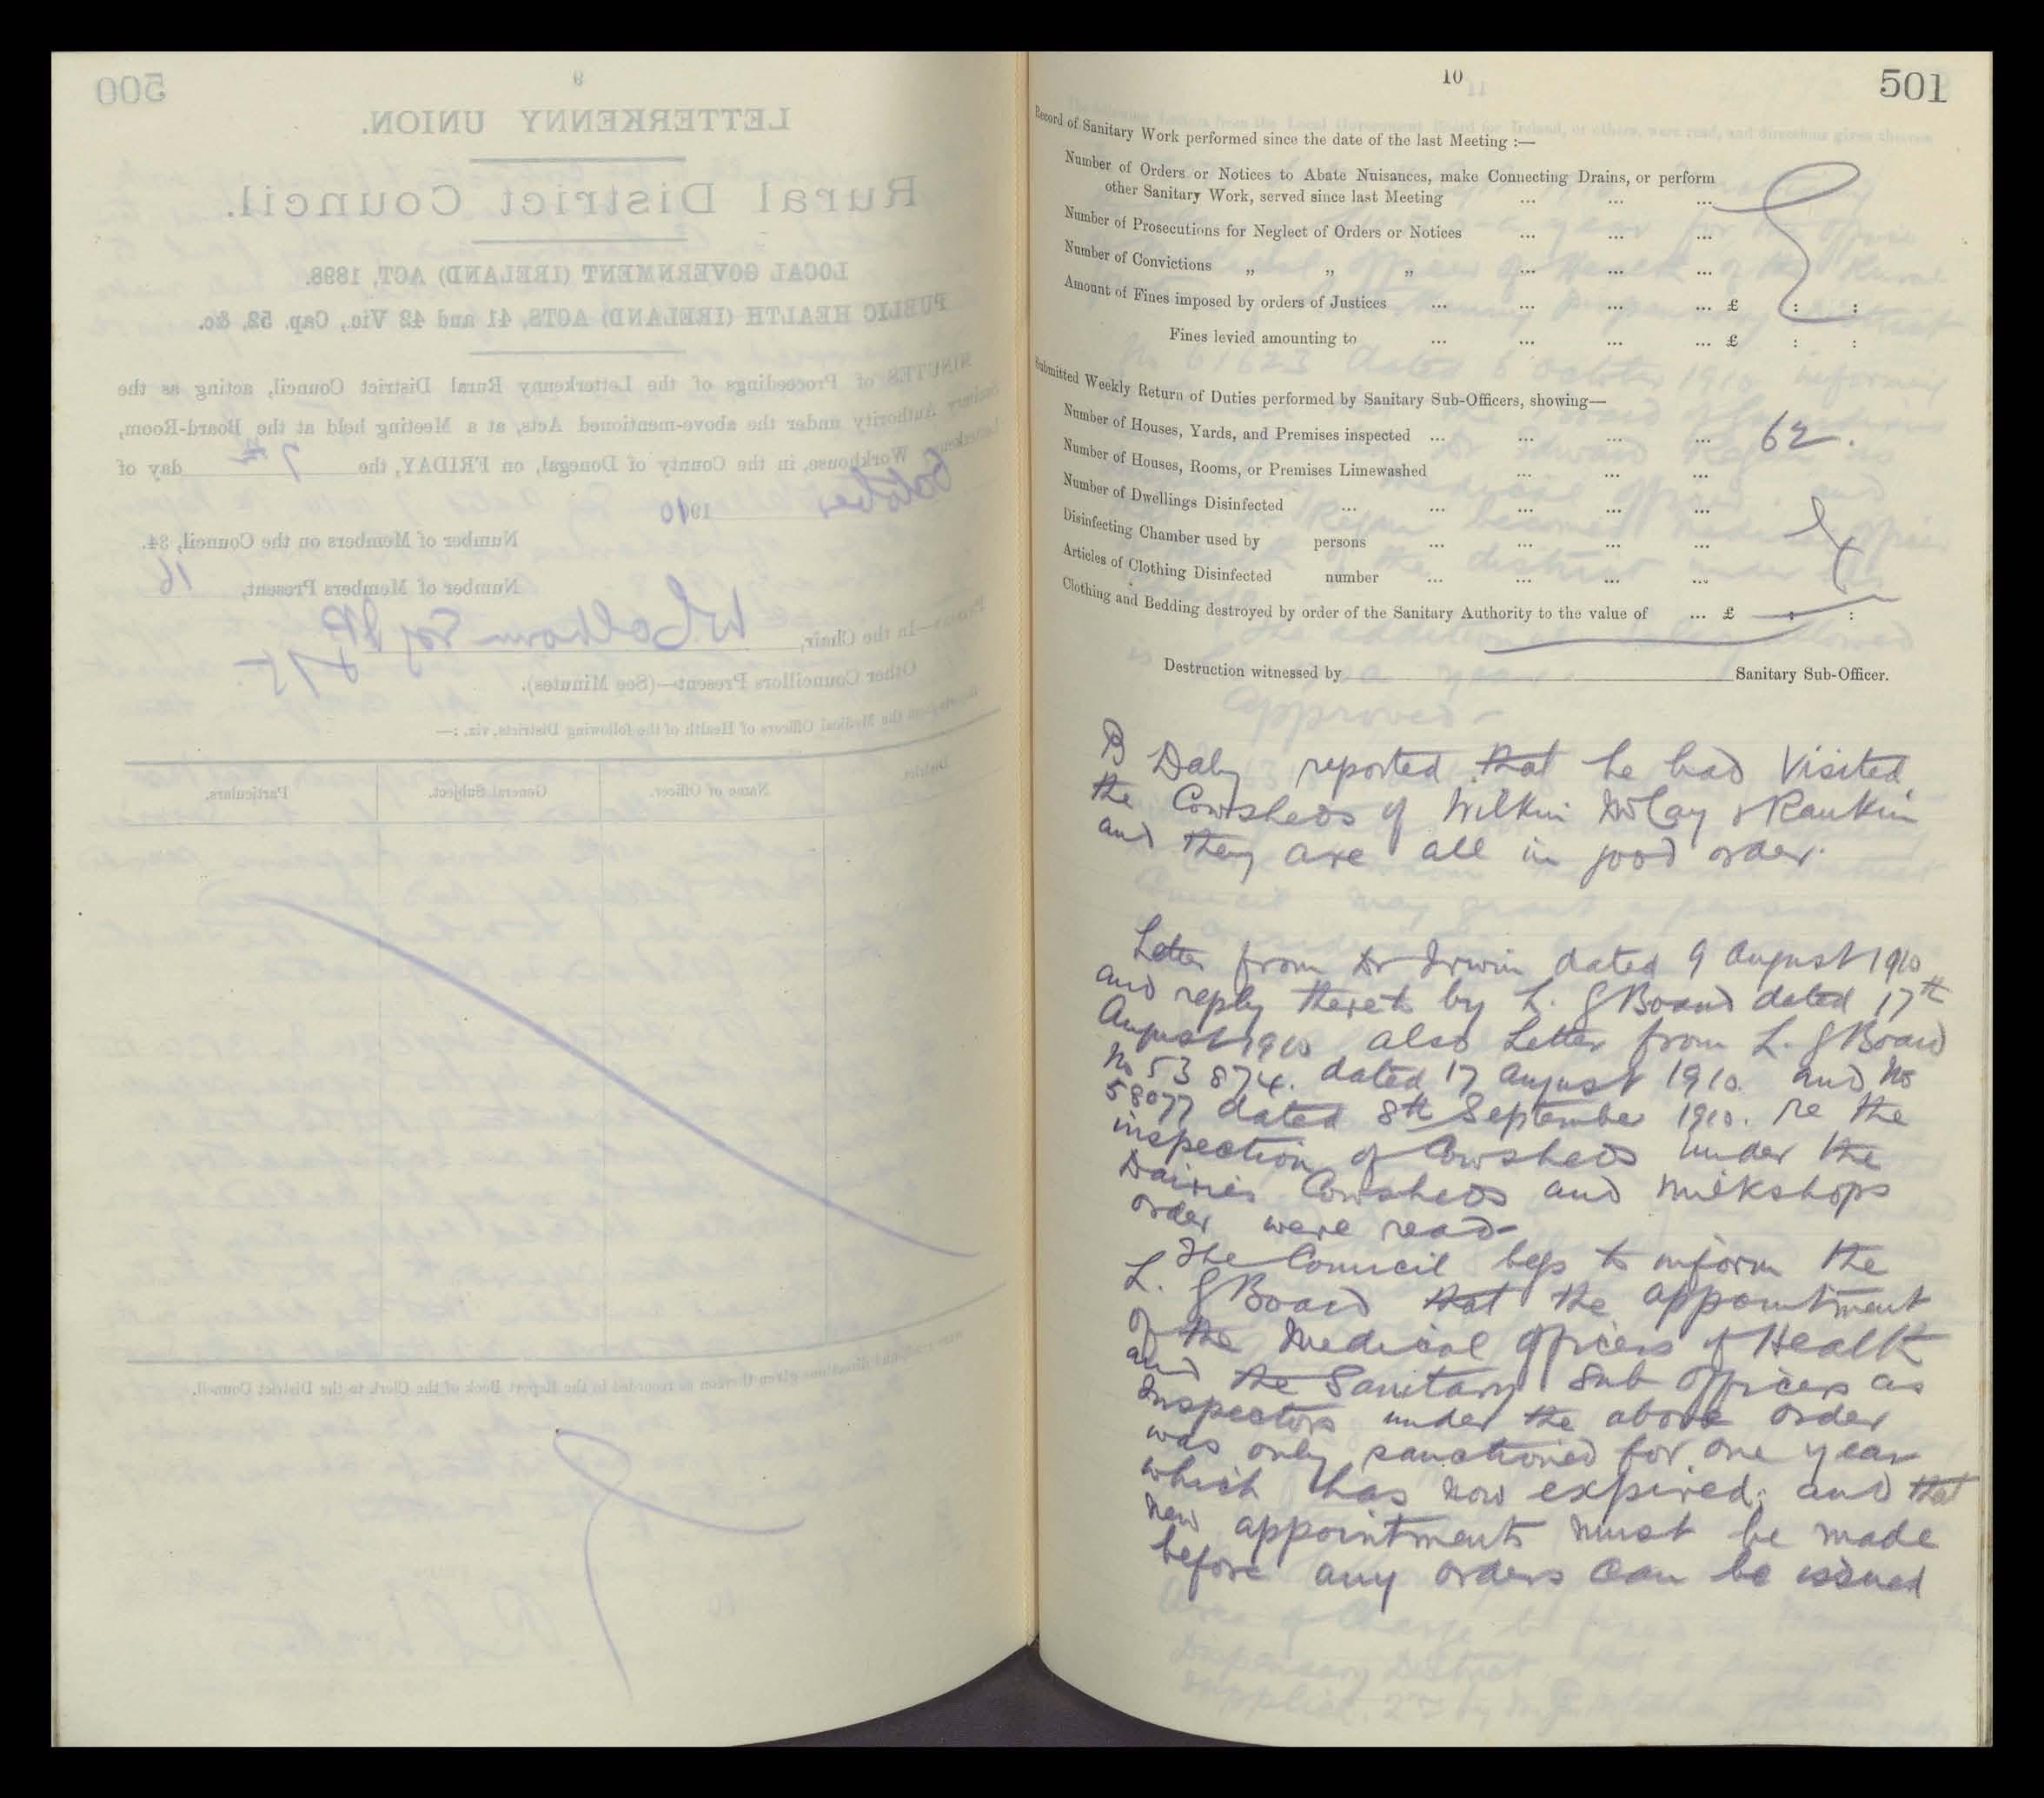 500
9
LETTERKENNY UNION.
Rural District Council.
LOCAL GOVERNMENT (IRELAND) ACT, 1898.
PUBLIC HEALTH (IRELAND) ACTS, 41 and 42 Vic., Cap. 52, &c.
MINUTES of Proceedings of the Letterkenny Rural District Council, acting as the
Sanitary Authority under the above-mentioned Acts, at a Meeting held at the Board-Room,
Letterkenny Workhouse, in the County of Donegal, on FRIDAY, the 7th day of
October 1910
Number of Members on the Council, 34.
Number of Members Present, 16
Present—In the Chair, W Colhoun Esq JP
Other Councillors Present—(See Minutes). + 15
Reports from the Medical Officers of Health of the following Districts, viz. :—
District. Name of Officer. General Subject. Particulars.
were read, and directions given thereon as recorded in the Report Book of the Clerk to the District Council.
10
501
Record of Sanitary Work performed since the date of the last Meeting :—
Number of Orders or Notices to Abate Nuisances, make Connecting Drains, or perform
other Sanitary Work, served since last Meeting ... ... ...
Number of Prosecutions for Neglect of Orders or Notices ... ... ...
Number of Convictions „ „ „ ... ...
Amount of Fines imposed by orders of Justices ... ... ... ... £ : :
Fines levied amounting to ... ... ... ... £ : :
Submitted Weekly Return of Duties performed by Sanitary Sub-Officers, showing—
Number of Houses, Yards, and Premises inspected ... ... ... ... 62.
Number of Houses, Rooms, or Premises Limewashed ... ... ...
Number of Dwellings Disinfected ... ... ... ... ...
Disinfecting Chamber used by persons ... ... ... ...
Articles of Clothing Disinfected number ... ... ... ...
Clothing and Bedding destroyed by order of the Sanitary Authority to the value of ... £ : :
Destruction witnessed by Sanitary Sub-Officer.
B Daly reported that he had visited
the Cowsheds of Wilkin McCay & Rankin
and they are all in good order.
Letter from Dr Irwin dated 9 August 1910
and reply thereto by L. G Board dated 17th
August 1910 also Letter from L. G Board
No 53874. dated 17 August 1910. and No
58077 dated 8th September 1910. re the
inspection of Cowsheds under the
Dairies Cowsheds and Milkshops
order were read-
The Council begs to inform the
L. G Board that the appointment
of the Medical Officers of Health
and the Sanitary Sub Officers as
Inspectors under the above order
was only sanctioned for one year
which has now expired; and that
new appointments must be made
before any orders can be issued